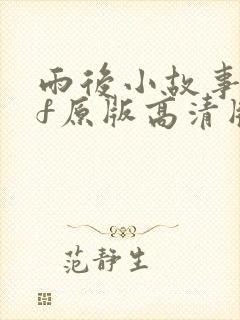 雨後小故事
f原版高清
范静生